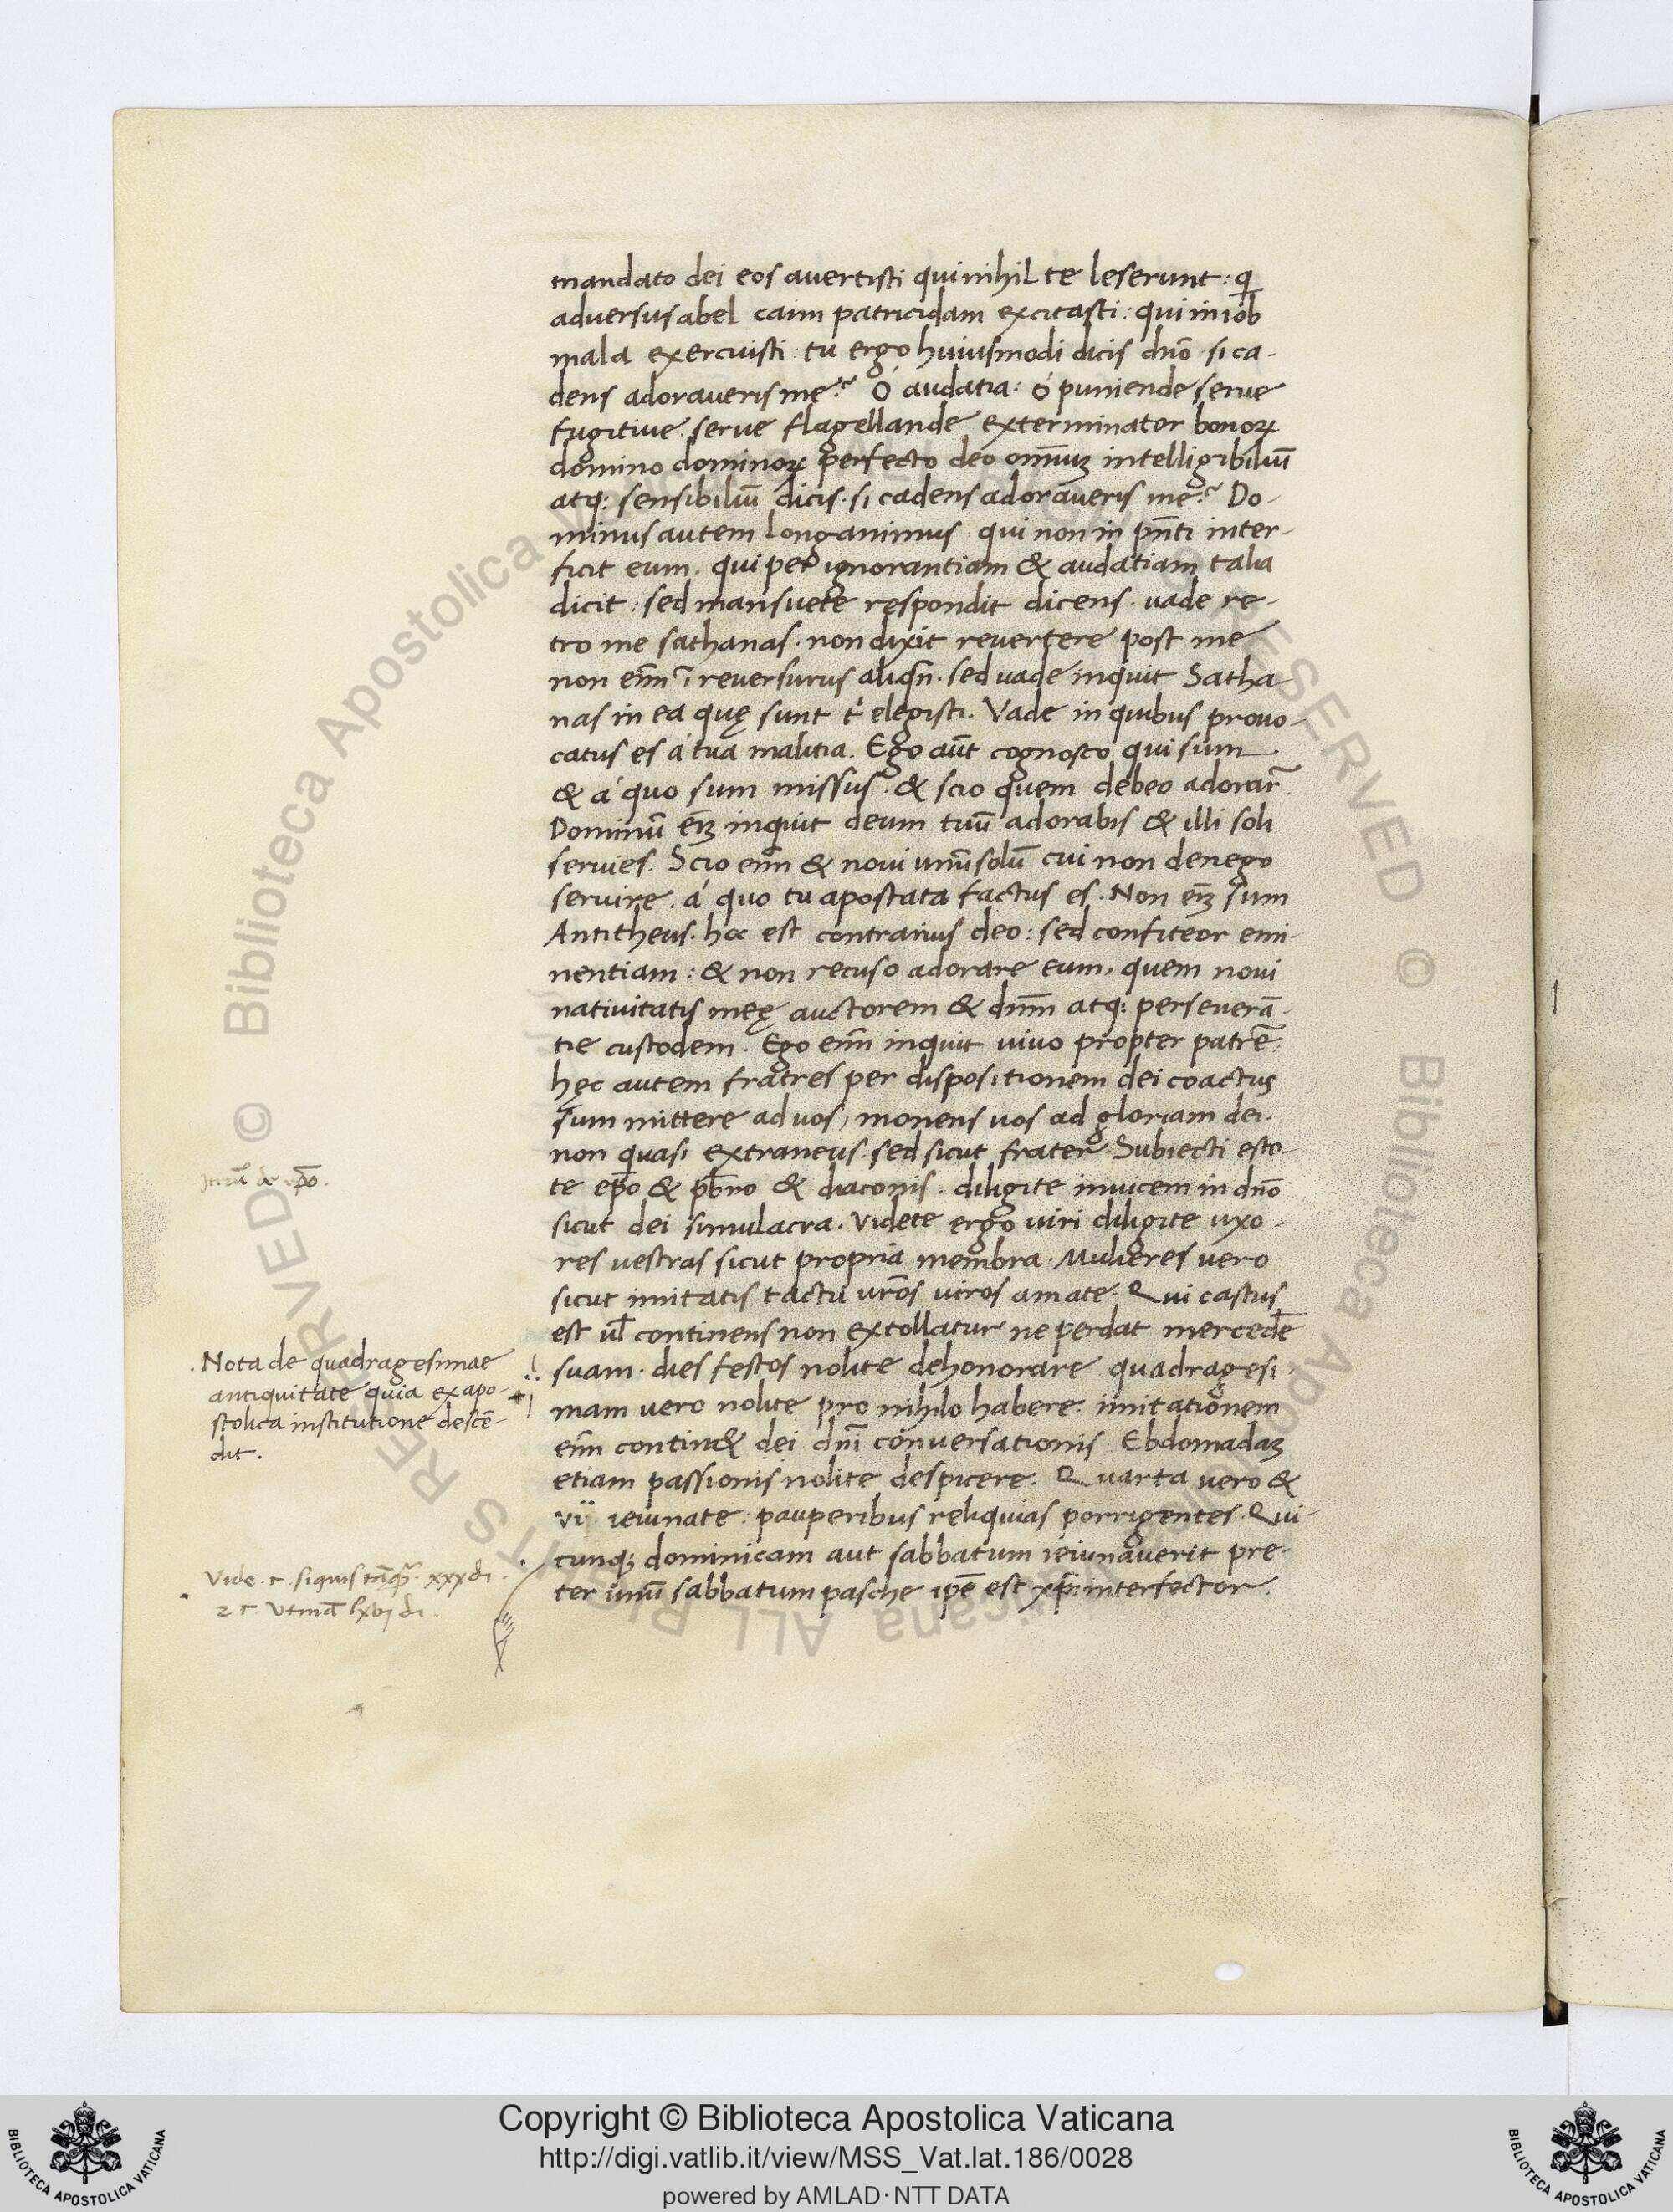 mandato dei eos auertisti qui nihil te leserunt : q̃
aduersus abel caim patricidam excitasti : qui in iob
mala exercuisti : tu ergo huiusmodi dicis dño si ca-
dens adoraueris me? Ó audatia : ó puniende serue
fugitiue . serue flagellande exterminator bonoꝝ
domino dominoꝝ perfecto deo om̄iuꝫ intelligibiliũ
atq: sensibiliũ dicis . si cadens adoraueris me? Do-
minus autem longanimus qui non in pñti inter-
ficit eum . qui per ignorantiam & audatiam talia
dicit : sed mansuete respondit dicens . uade re-
tro me sathanas . non dixit reuertere post me
non em̄ ĩ reuersurus aliqñ . sed uade inquit Satha-
nas in ea quę sunt t' elegisti . Vade in quibus prouo-
catus es á tua malitia . Ego aũt cognosco qui sum
& á quo sum missus . & scio quem debeo adorar̃
Dominũ eñꝫ inquit deum tuũ adorabis & illi soli
seruies . Scio em̄ & noui unũ solũ cui non denego
seruire . á quo tu apostata factus es . Non eñꝫ sum
Antitheus . hoc est contrarius deo : sed confiteor emi-
nentiam : & non recuso adorare eum , quem noui
natiuitatis meę auctorem & dñm atq: perseuerã-
tie custodem . Ego em̄ inquit uiuo propter patrẽ ,
hęc autem fratres per dispositionem dei coactus
sum mittere ad uos , monens uos ad gloriam dei .
non quasi extraneus . sed sicut frater . Subiecti esto-
te ep̄o & p̄b̄ro & diaconis . diligite inuicem in dño
sicut dei simulacra . Videte ergo uiri diligite uxo-
res uestras sicut propria membra . Mulieres uero
sicut imitatis tactu ur̃os uiros amate . Qui castus
est ul̃ continens non extollatur ne perdat mercedẽ
suam . dies festos nolite dehonorare quadragesi-
mam uero nolite pro nihilo habere . imitationem
em̄ contin& dei dñi conuersationis . Ebdomadaꝫ
etiam passionis nolite despicere . Quarta uero &
vi ieiunate : pauperibus reliquias porrigentes . Qui-
cunqꝫ dominicam aut sabbatum ieiunauerit pre-
ter unũ sabbatum pasche ip̄e est xp̄i interfector .
Iterũ de ep̄o .
. Nota de quadragesimae
antiquitate quia ex apo-
stolica institutione descẽ-
dit .
Vide . c . si quis tãq̃ . xxx di .
Copyright © Biblioteca Apostolica Vaticana
http://digi.vatlib.it/view/MSS_Vat.lat.186/0028
powered by AMLAD·NTT DATA
BIBLIOTECA APOSTOLICA VATICANA
BIBLIOTECA APOSTOLICA VATICANA
© Biblioteca Apostolica Vaticana ALL RIGHTS RESERVED © Biblioteca Apostolica Vaticana ALL RIGHTS RESERVED